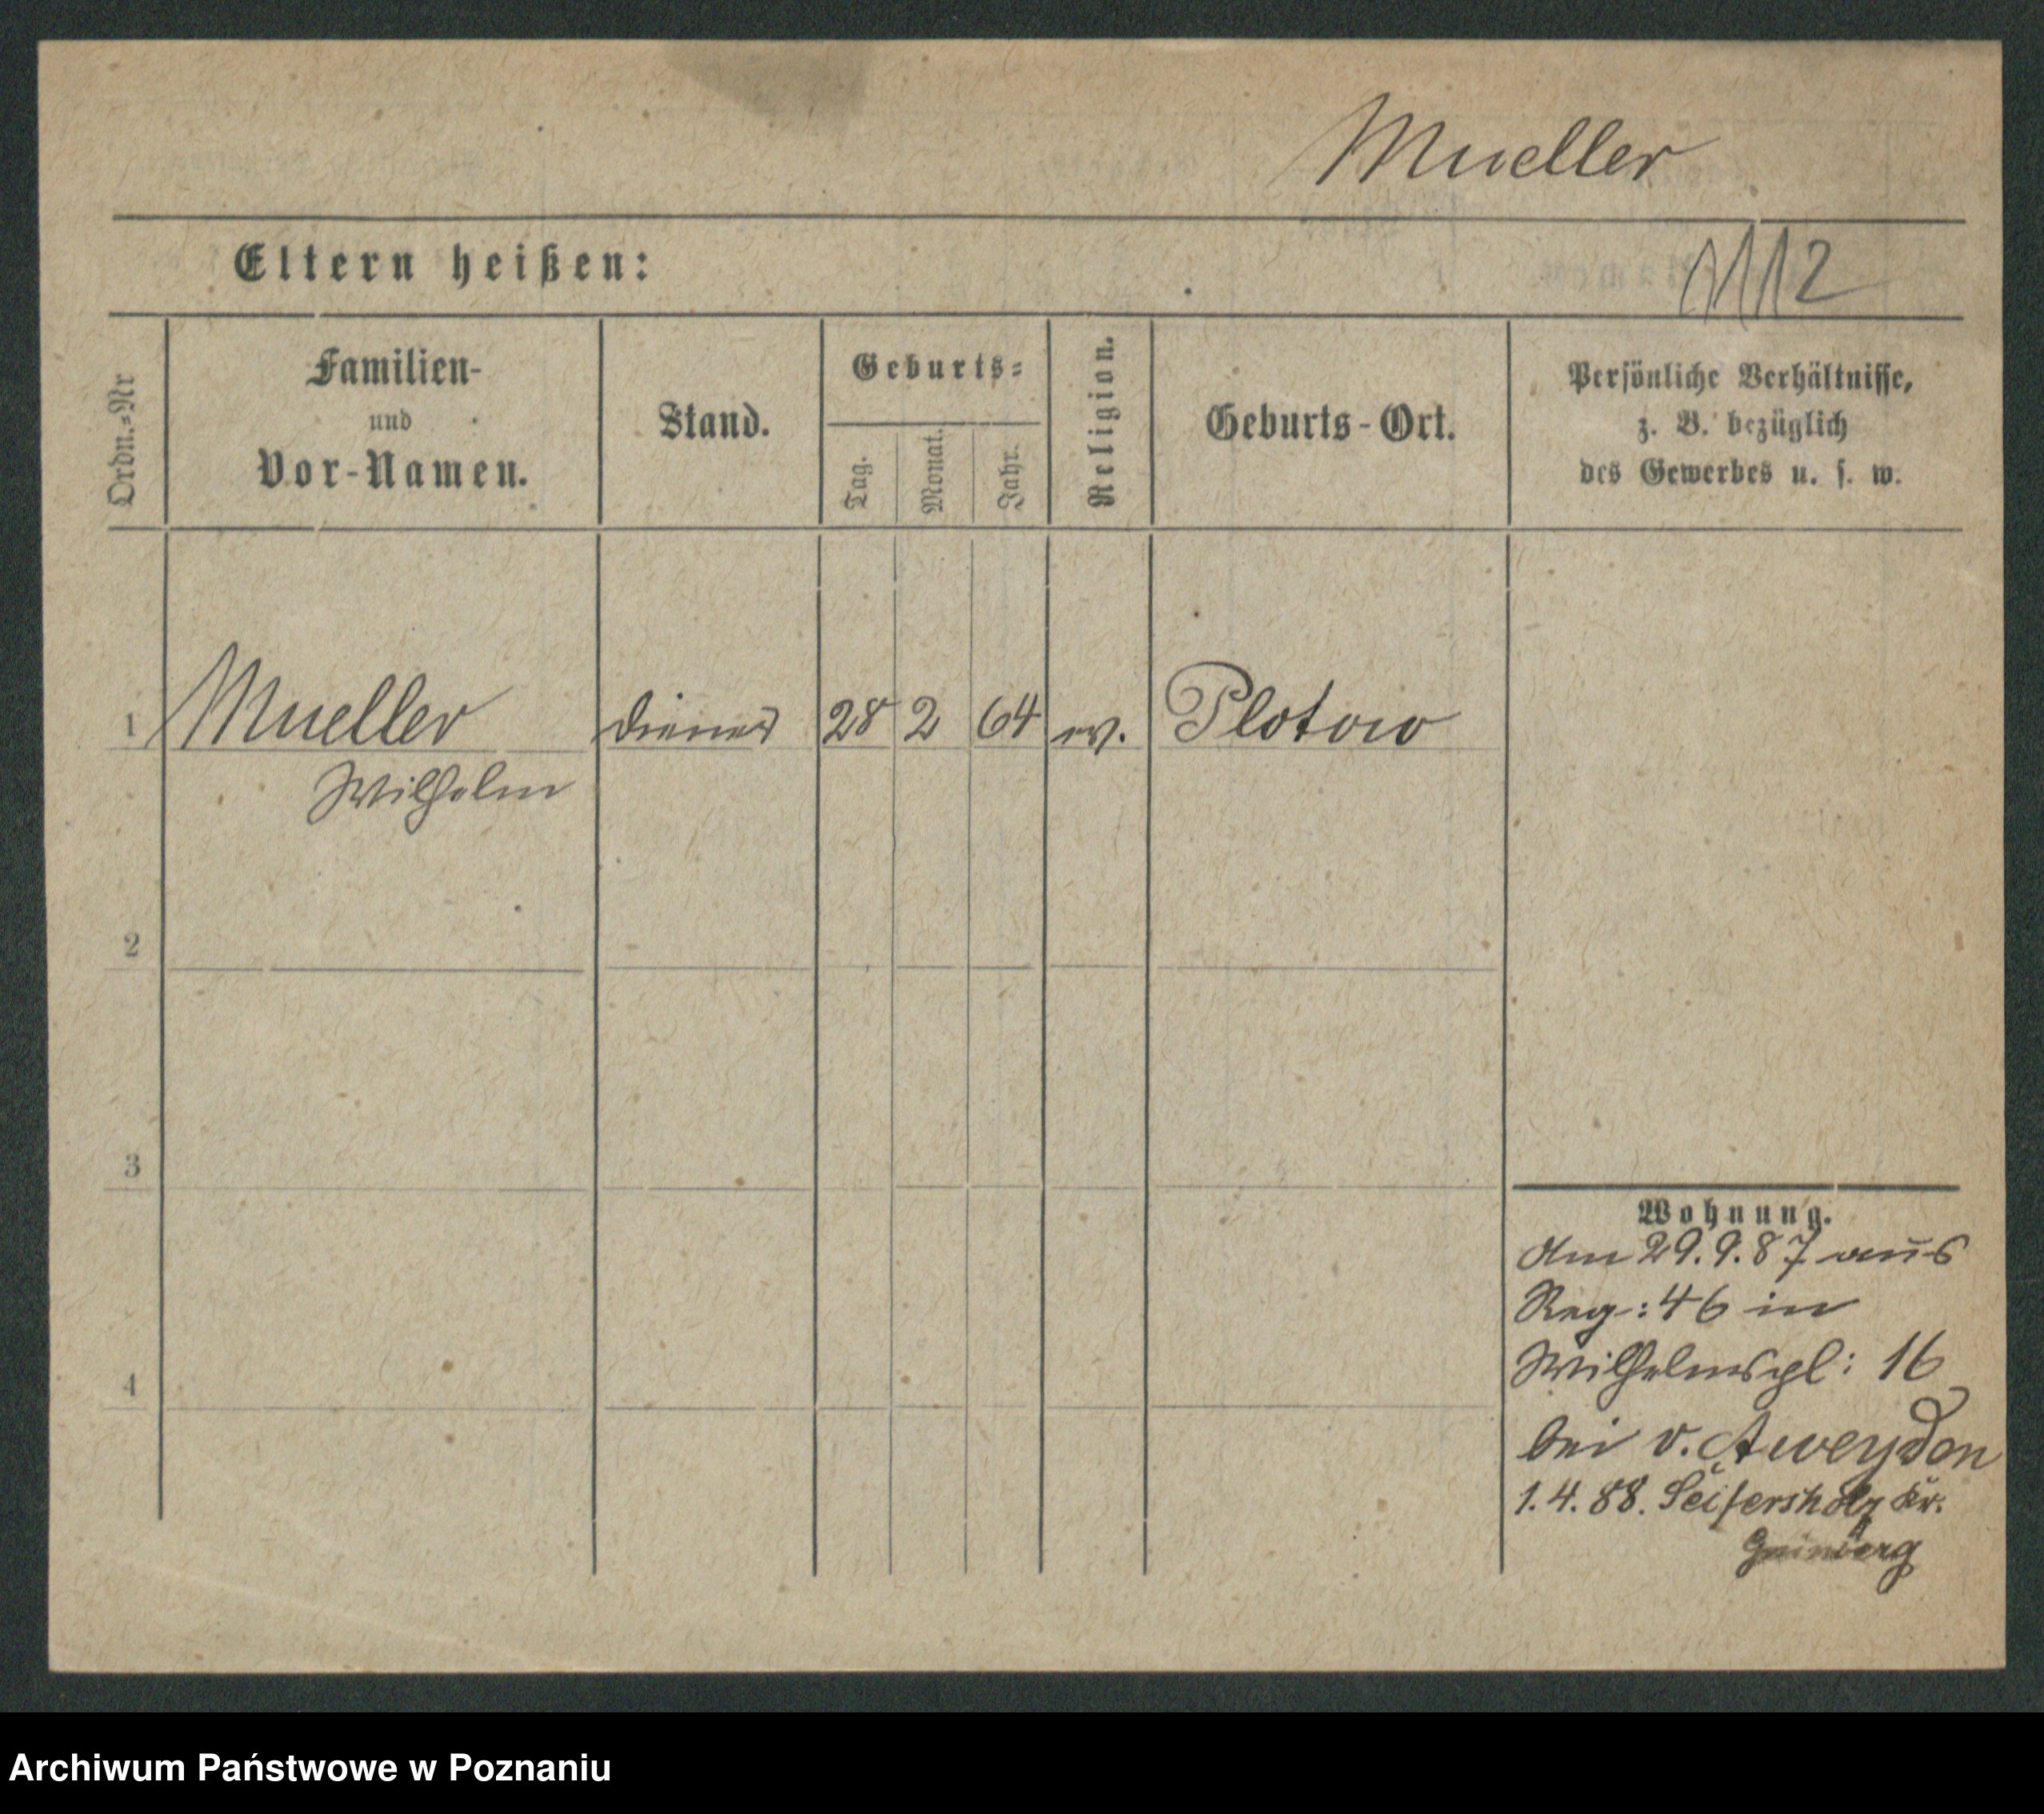 Mueller
Eltern heißen:
1112
Ordn.=Nr
Familien-
und
Vor-Namen.
Stand.
Geburts=
Tag.
Monat.
Jahr.
Religion.
Geburts-Ort.
Persönliche Verhältnisse,
z. B. bezüglich
des Gewerbes u. s. w.
1 Mueller Diener 28 2 64 ev. Plotow
Wilhelm
2
3
4
Wohnung.
Am 29.9.87 aus
Reg.: 46 in
Wilhelmspl: 16
bei v. Aweyden
1.4.88. Seifersholz Kr.
Archiwum Państwowe w Poznaniu